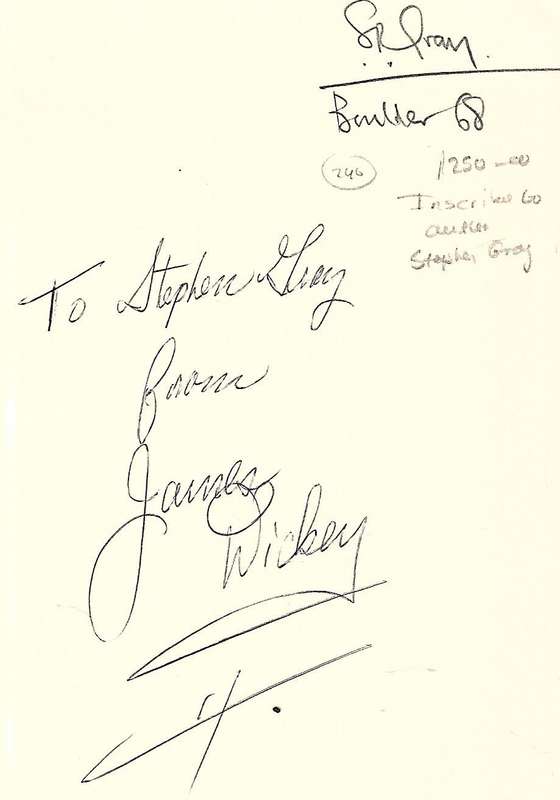 SR Gray.
Boulder 68
246
1250-00
Inscribe to
author
Stephen Gray
To Stephen Gray
from
James
Dickey